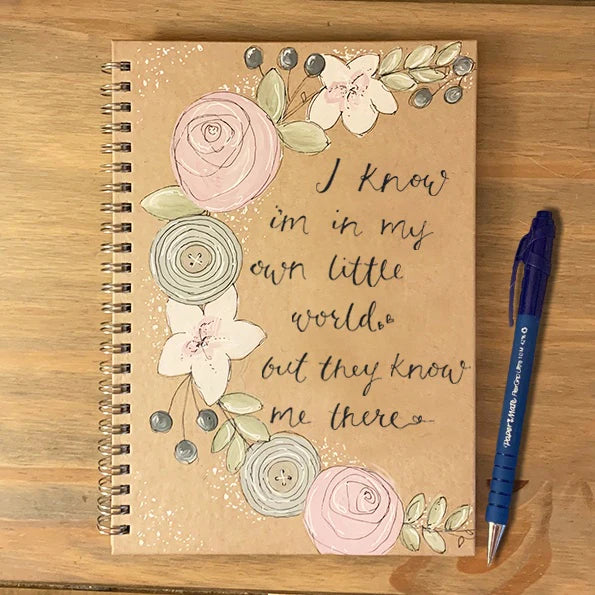 I know
i'm in my
own little
world.
but they know
me there
PAPER MATE